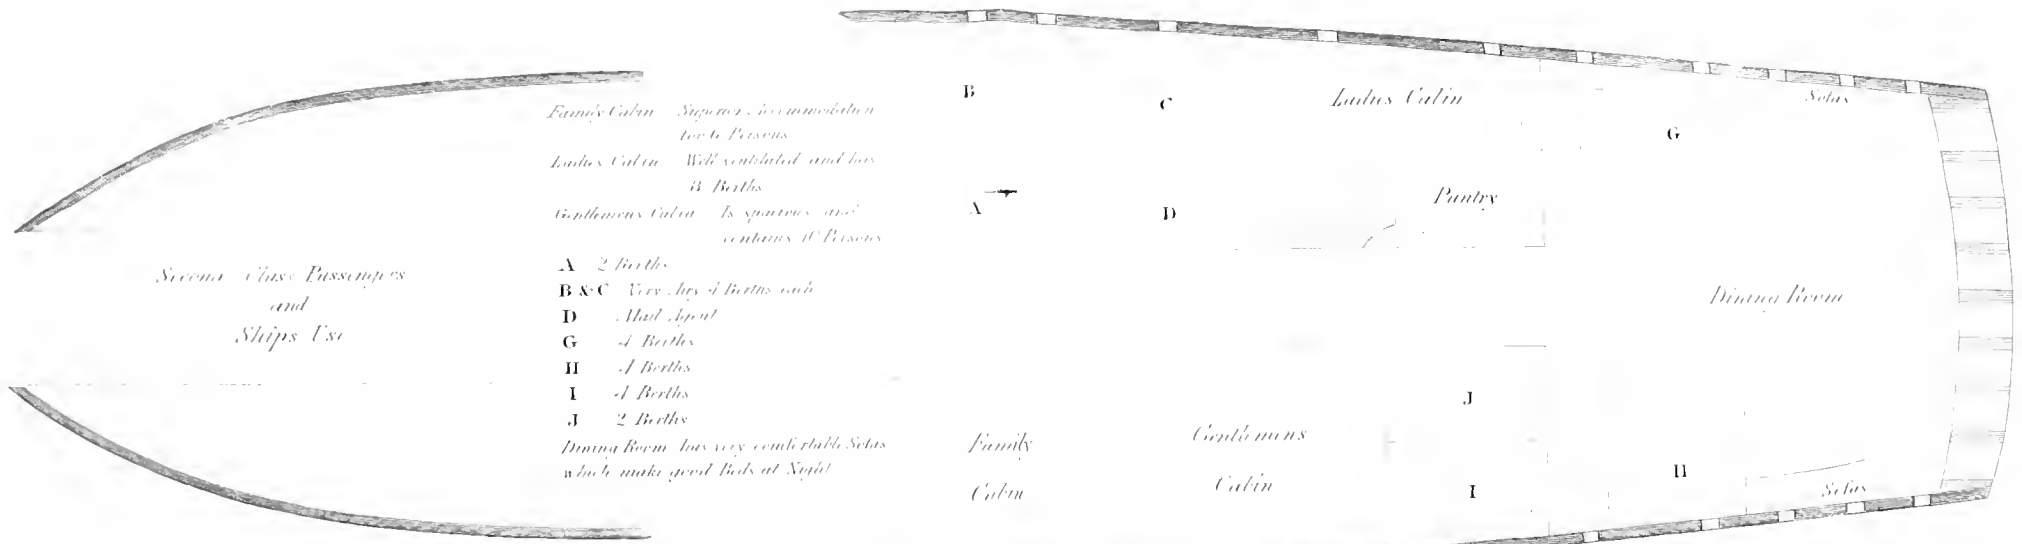 Second Class Passengers
and
Ships Use
Family Cabin Superior Accommodation
for 6 Persons
Ladies Cabin Well ventilated and has
8 Berths
Gentlemens Cabin Is spacious and
contains 10 Persons
A 2 Berths
B & C Very Airy 4 Berths each
D Mail Agent
G 4 Berths
H 4 Berths
I 4 Berths
J 2 Berths
Dining Room has very comfortable Sofas
which make good Beds at Night
B
C
Ladies Cabin
Sofas
G
A
D
Pantry
Dining Room
J
Family
Cabin
Gentlemens
Cabin
I
H
Sofas